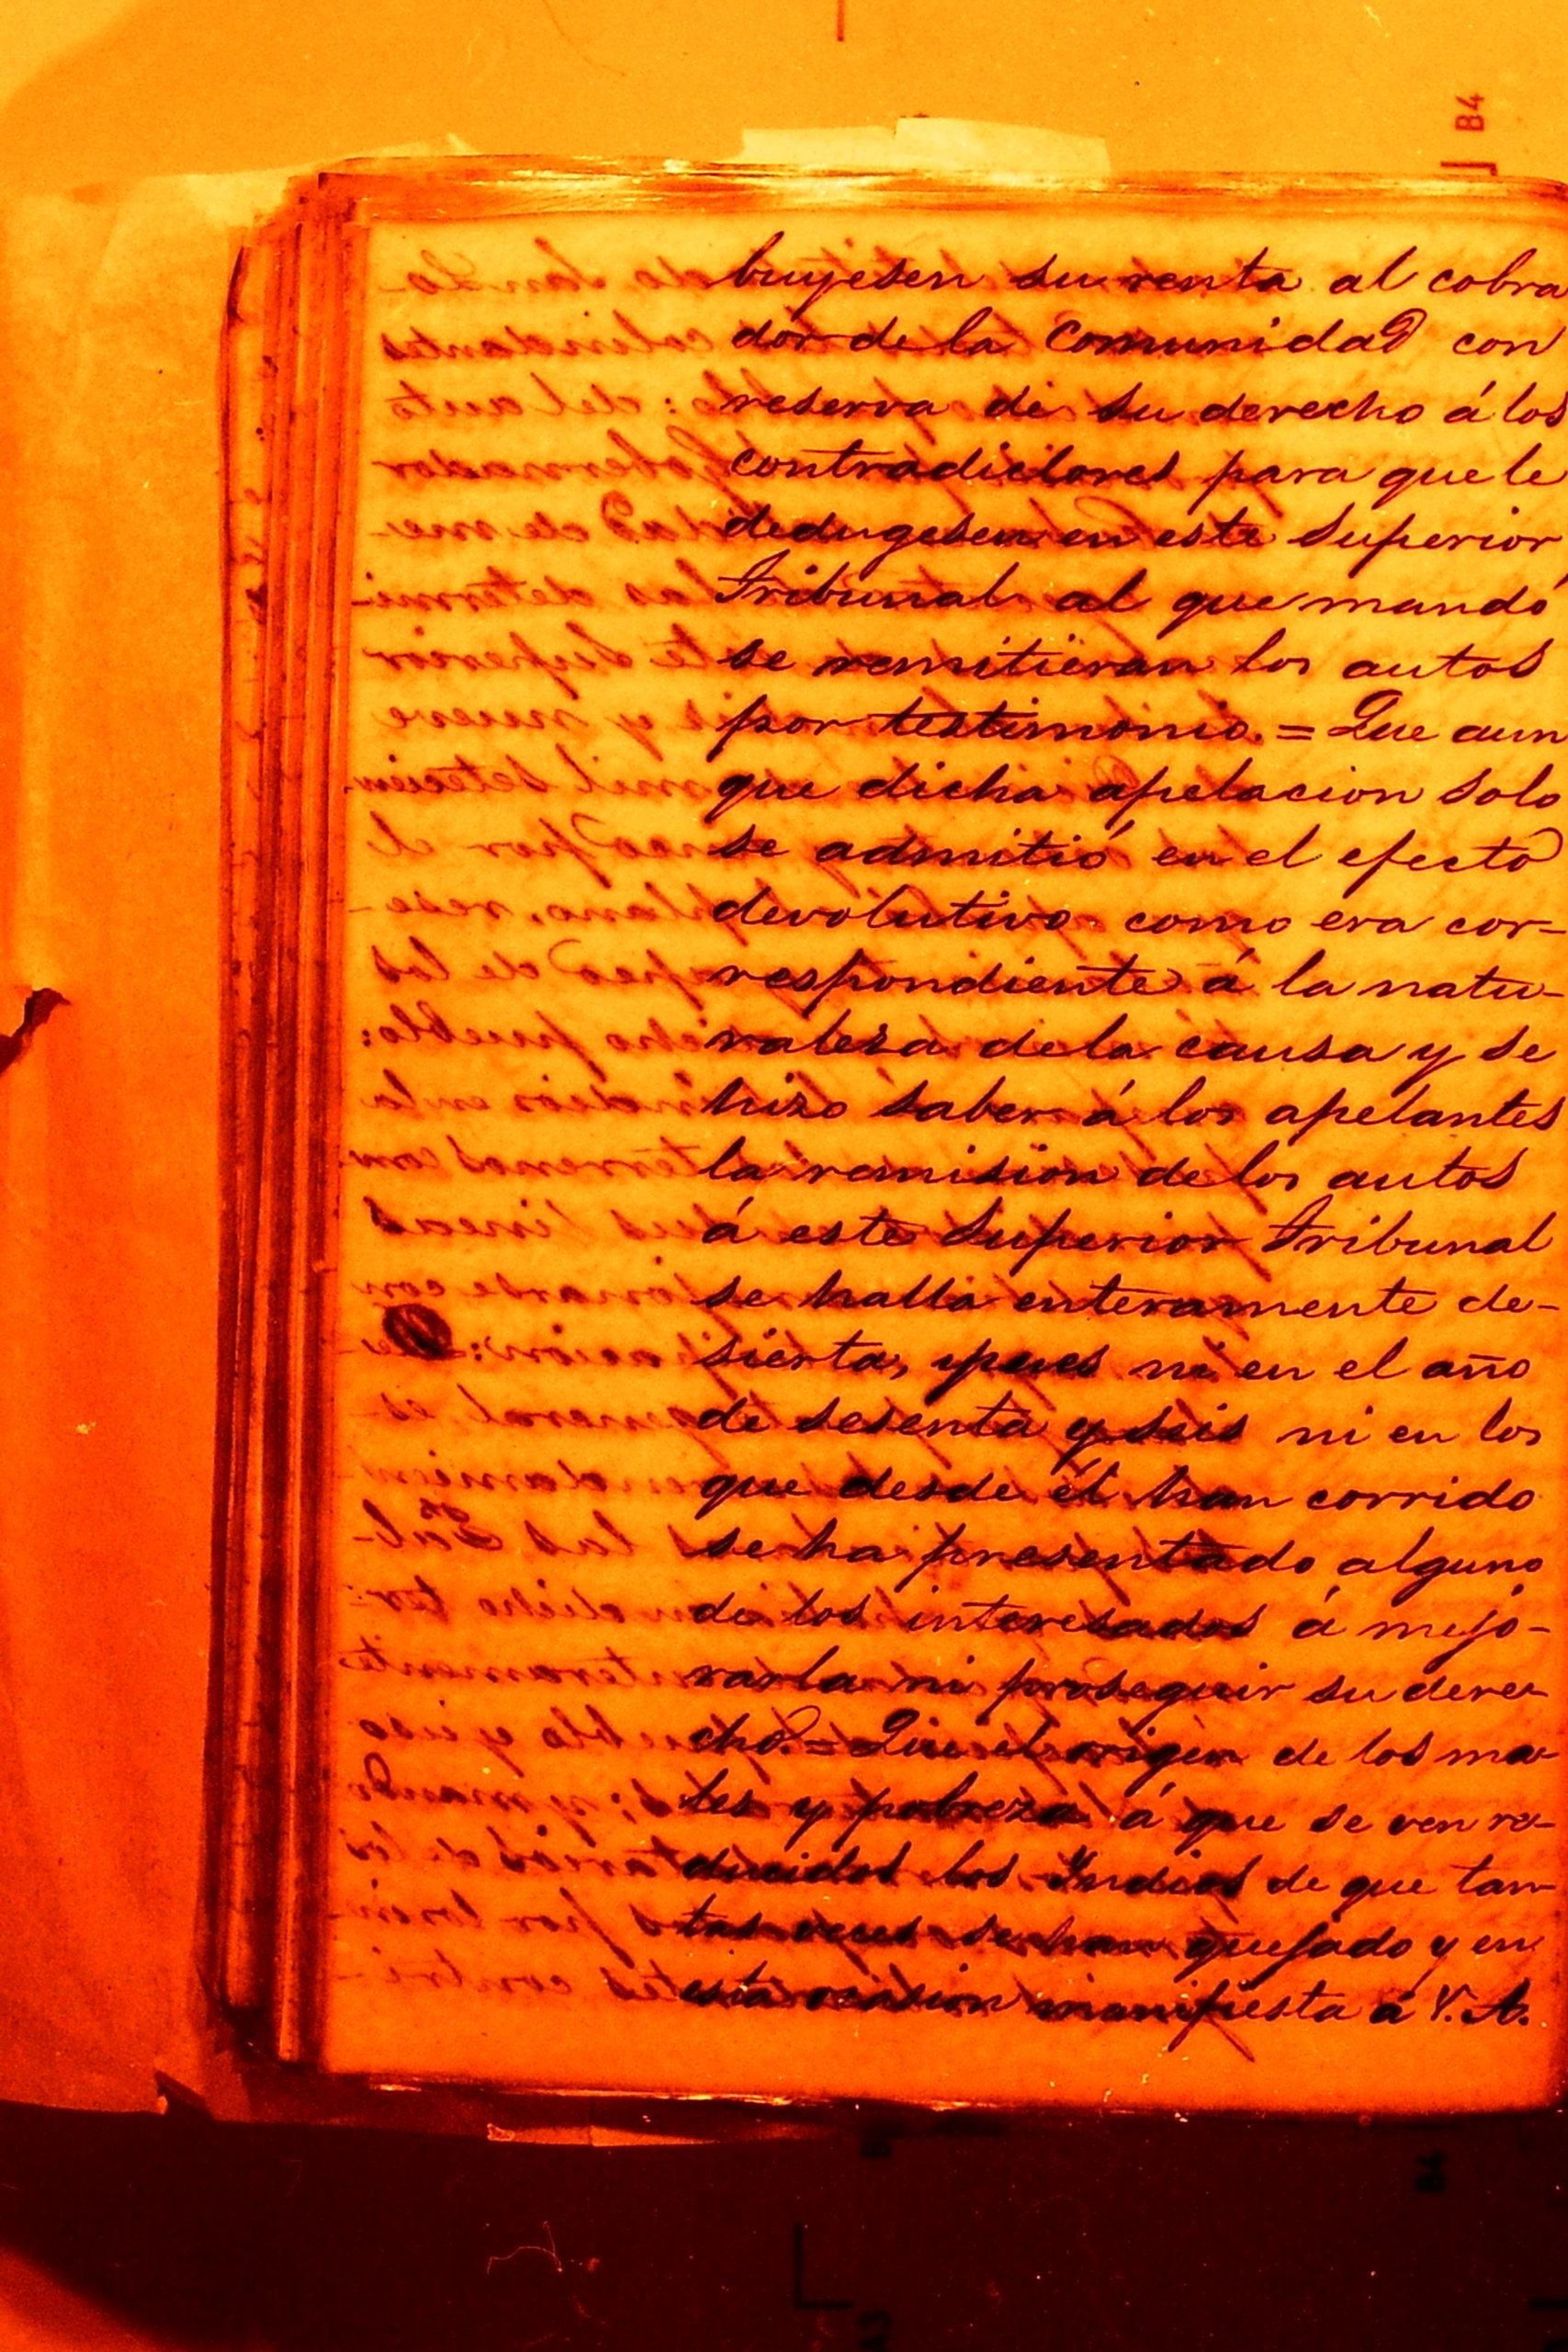 buyesen su renta al cobra
dor de la Comunidad con
reserva de su derecho á los
contradictores para que le
dedugesen en este Superior
Tribunal al que mandó
se remitieran los autos
por testimonio. = Que aun
que dicha apelacion solo
se admitió en el efecto
devolutivo como era cor-
respondiente á la natu-
raleza de la causa y se
hizo saber á los apelantes
la remision de los autos
á este Superior Tribunal
se halla enteramente de-
sierta, pues ni en el año
de sesenta y seis ni en los
que desde él han corrido
se ha presentado alguno
de los interesados á mejo-
rarla ni proseguir su dere-
cho. = Que el origen de los ma-
les y pobreza á que se ven re-
ducidos los Indios de que tan-
tas veces se han quejado y en
esta ocasion manifiesta á V. A.
B4
B4
A3